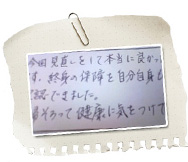 今回見直しをして本当に良かっ
す。終身の保障を自分自身も
認できました。
員そろって健康に気をつけて